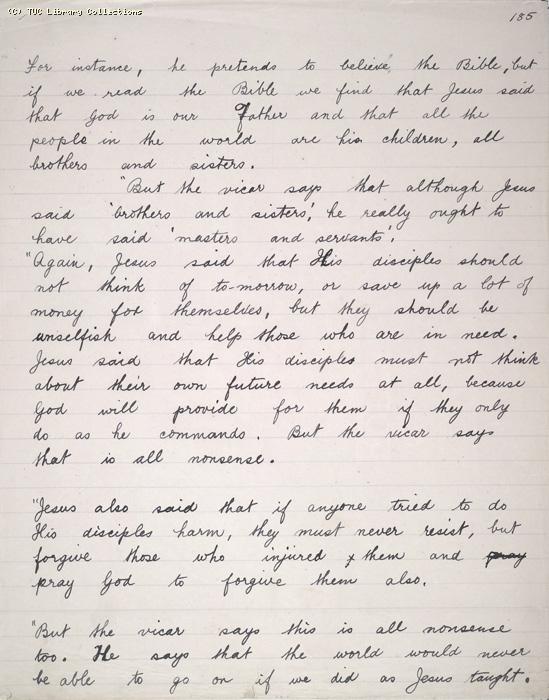 (C) TUC Library Collections
185
For instance, he pretends to believe the Bible, but
if we read the Bible we find that Jesus said
that God is our Father and that all the
people in the world are his children, all
brothers and sisters.
"But the vicar says that although Jesus
said 'brothers and sisters', he really ought to
have said 'masters and servants'.
"Again, Jesus said that His disciples should
not think of to-morrow, or save up a lot of
money for themselves, but they should be
unselfish and help those who are in need.
Jesus said that His disciples must not think
about their own future needs at all, because
God will provide for them if they only
do as he commands. But the vicar says
that is all nonsense.
"Jesus also said that if anyone tried to do
His disciples harm, they must never resist, but
forgive those who injured them and pray
pray God to forgive them also.
"But the vicar says this is all nonsense
too. He says that the world would never
be able to go on if we did as Jesus taught.